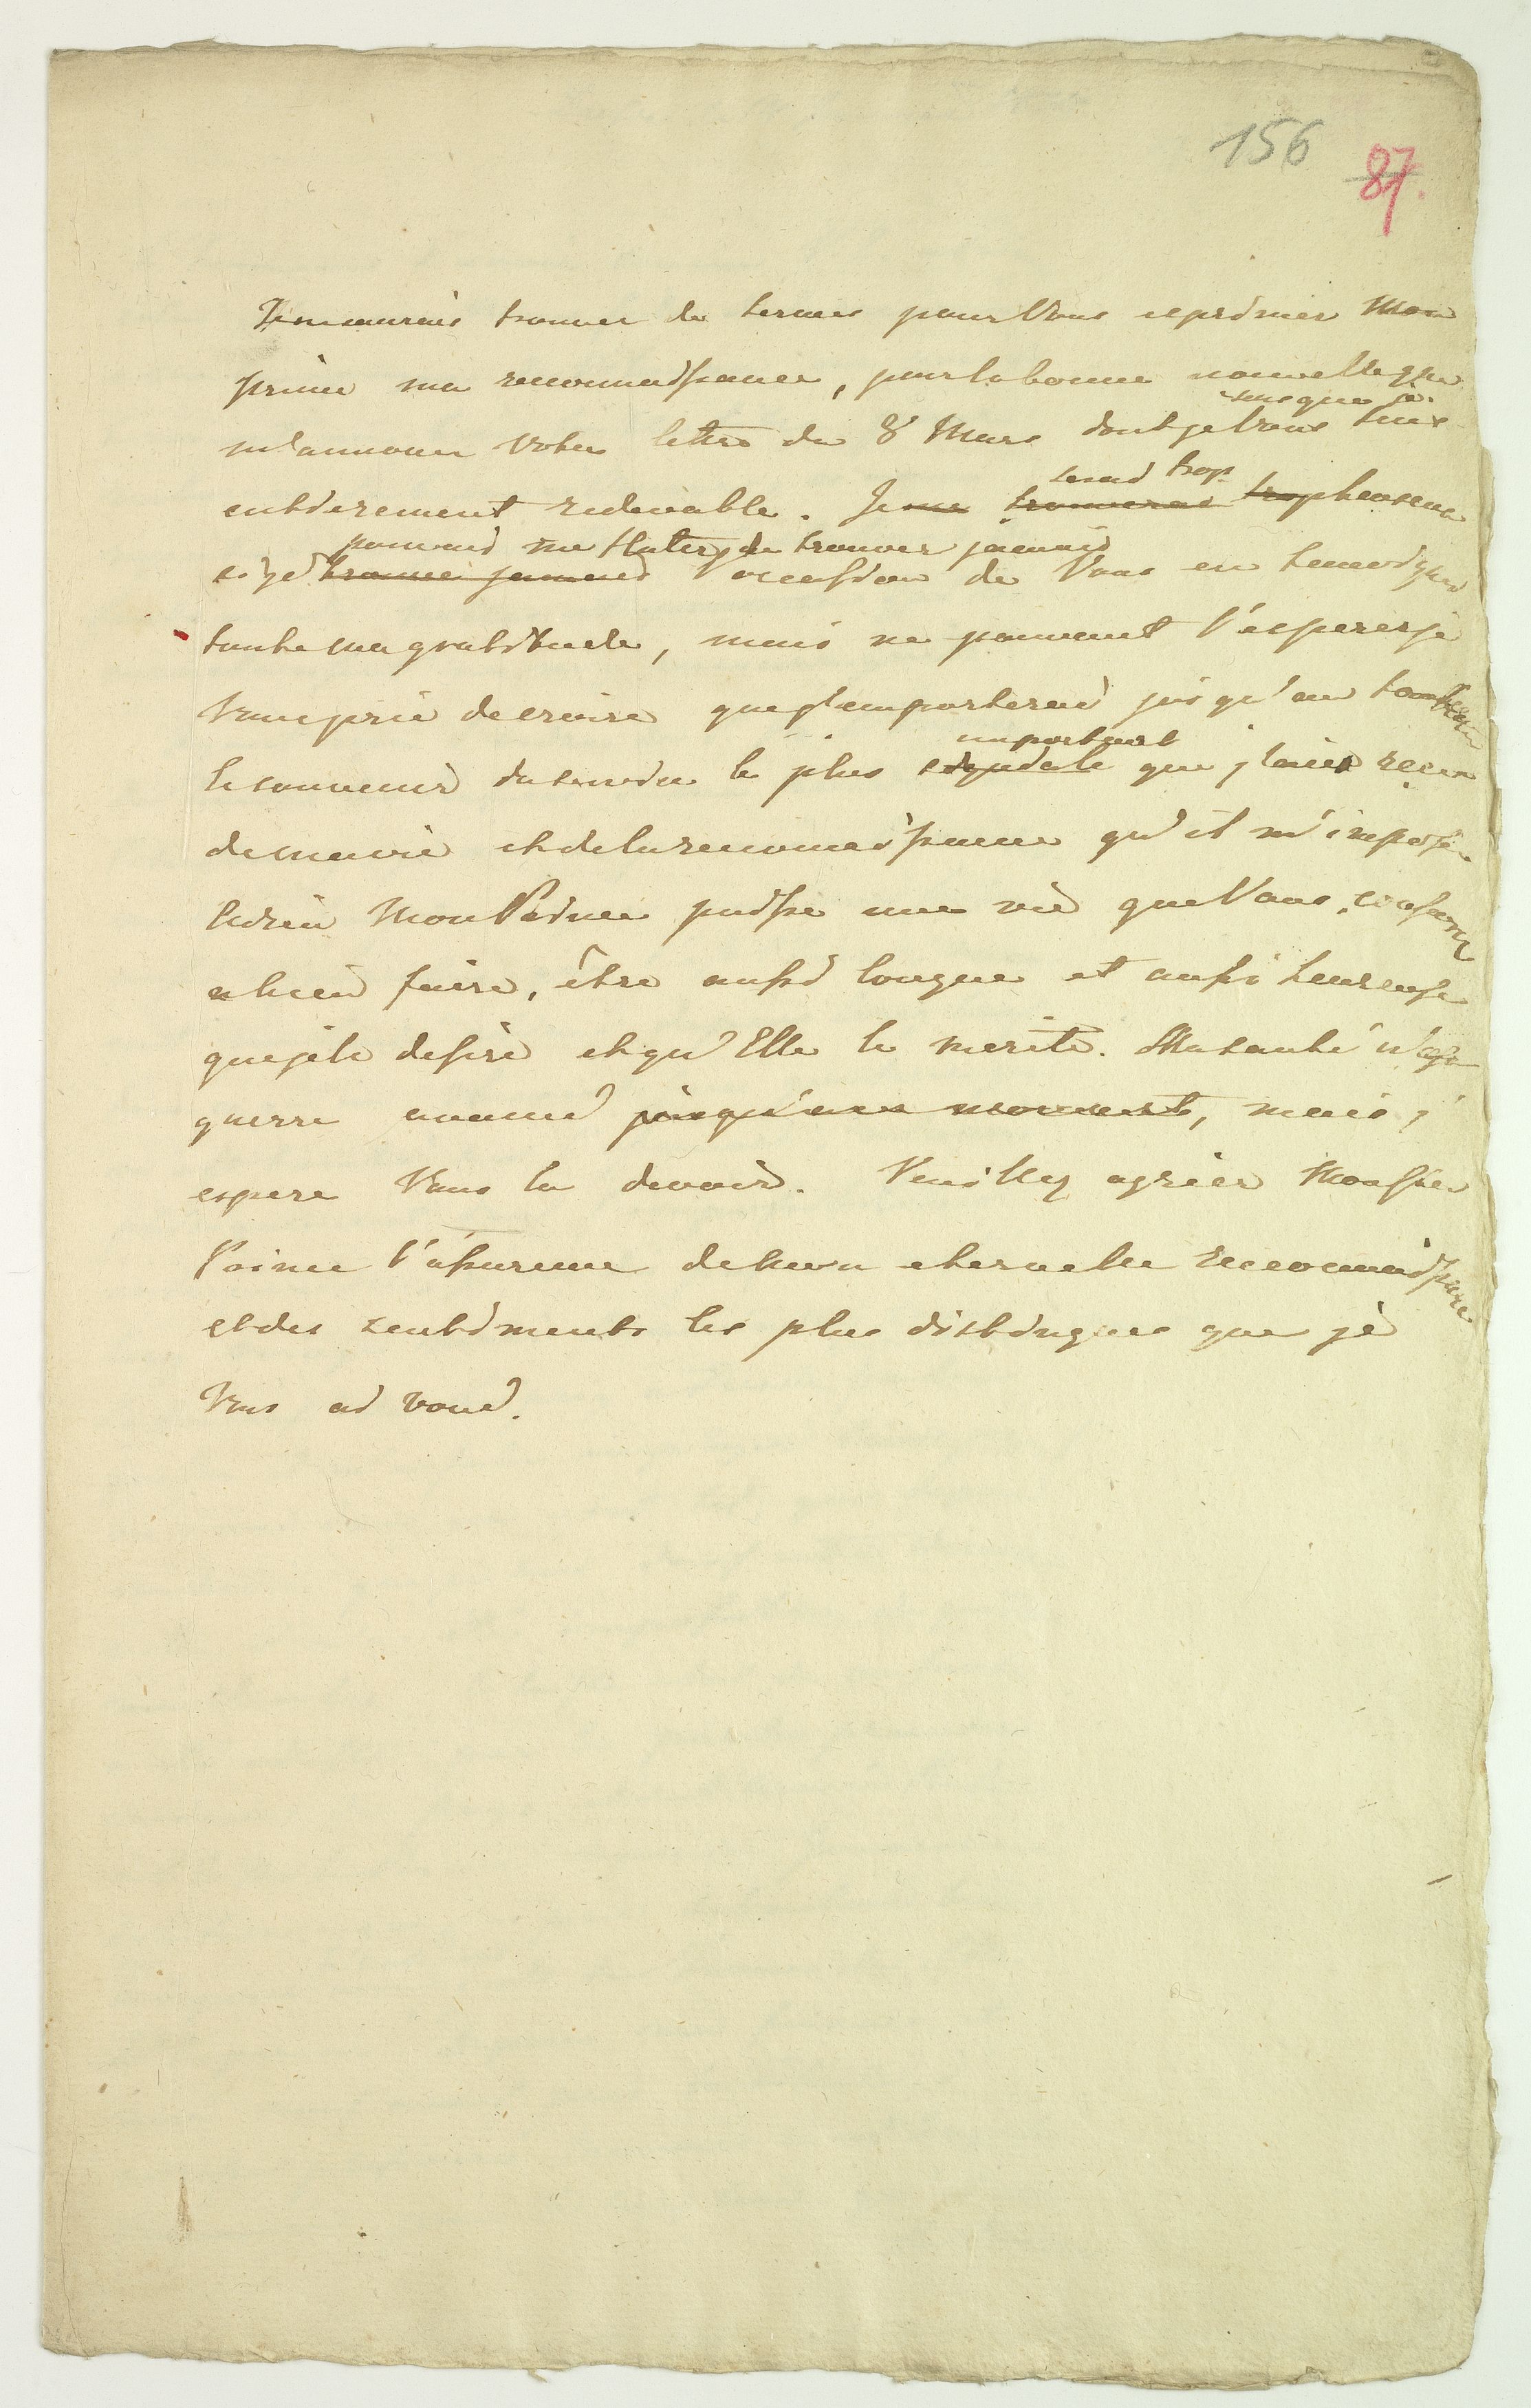 156
87.
Je ne saurais trouver de termes pour Vous exprimer Mon
Prince ma reconnaissance, pour la bonne nouvelle que
m'annonce votre lettre du 8 Mars dont je Vous suis
entierement redevable. Je me serai trop trouverai trop heureux
pouvais me flatter de trouver jamais
si je trouve jamais l'occassion de Vous en temoigner
toute ma gratitude, mais ne pouvant l'esperer je
Vous prie de croire que j'emporterai jusqu'au tombeau
important
le souvenir du service le plus signalé que j'aie reçu
de ma vie et de la reconnaissance qu'il m'impose.
Adieu Mon Prince puisse une vie que Vous
a bien faire, être aussi longue et aussi heureuse
que je le desire et qu'Elle le merite. Ma santé n'a
guerre avancé jusqu'au moment, mais j'
espere Vous la devoir. Veuillez agréer Monsieur
Prince l'assurence de mon eternelle reconnaissance
et des sentiments les plus distingues que je
Vous ai voué.